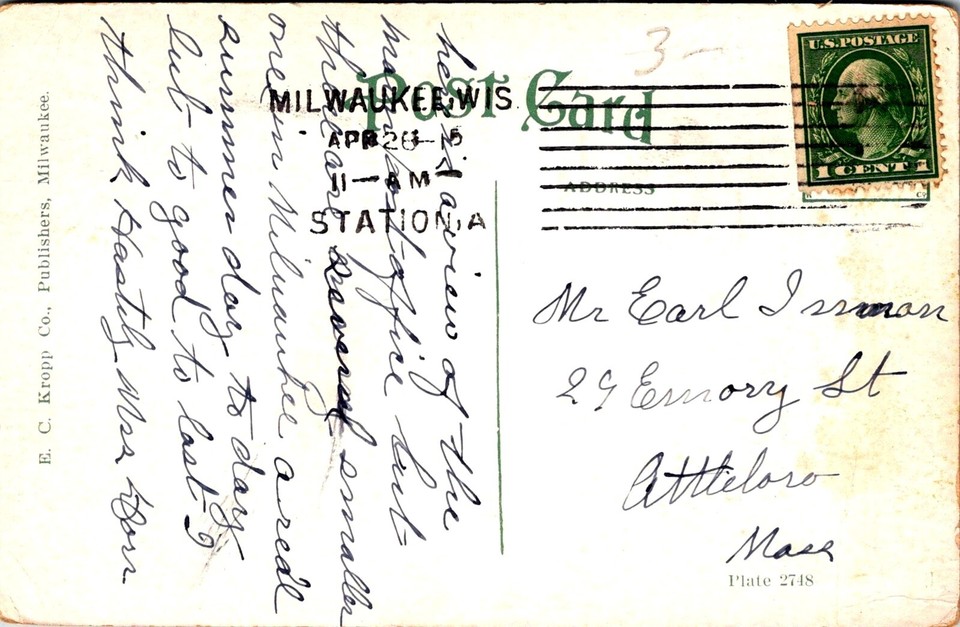 3-
Post Card
U.S. POSTAGE
1 CENT 1
MILWAUKEE, WIS.
APR 28-15
11-AM
STATION, A
ADDRESS
here is a view of the
main post office but
there are several smaller
ones in Milwaukee a real
summer day to day
but to good to last I
think Hastily Mrs Born
Mr Earl Inman
29 Emory St
Attleboro
Mass
Plate 2748
E. C. Kropp Co., Publishers, Milwaukee.